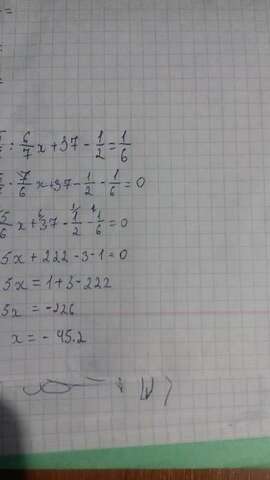 : 6/7 x + 37 - 1/2 = 1/6
· 7/6 x + 37 - 1/2 - 1/6 = 0
5/6 x + 37 - 1/2 - 1/6 = 0
5x + 222 - 3 - 1 = 0
5x = 1 + 3 - 222
5x = -226
x = - 45.2